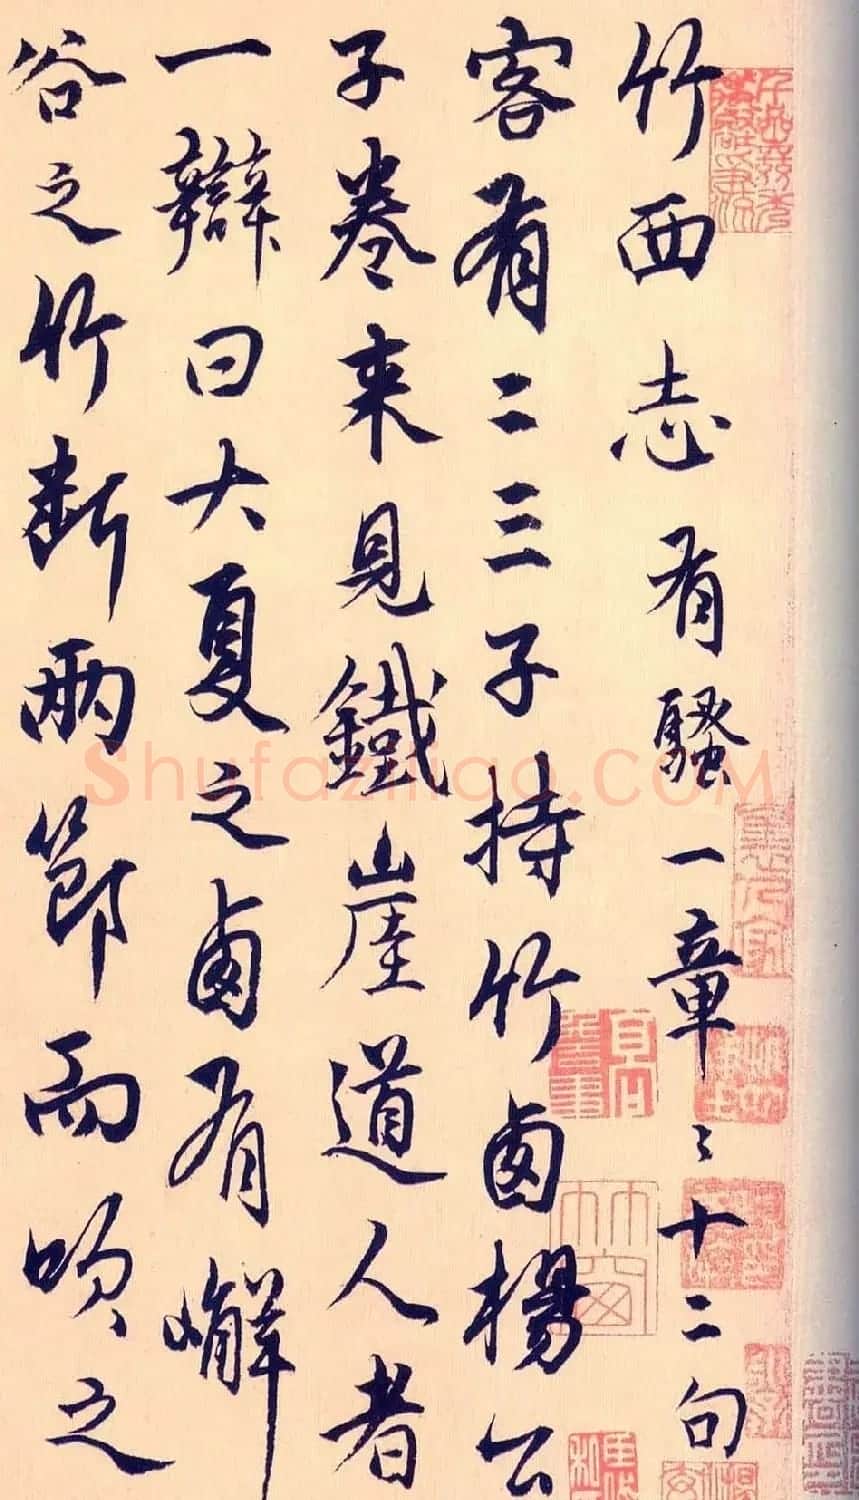 竹西志有騷一章〻十二句
客有二三子持竹㢴楊公
子卷来見鐵崖道人者
一辯曰大夏之㢴有嶰
谷之竹断兩節而吹之
ShufaziLiao.COM